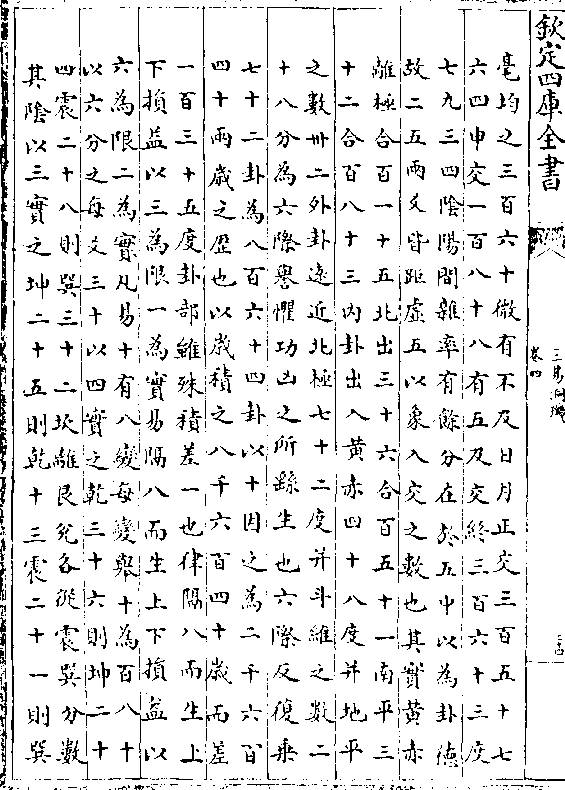 欽定四庫全書
三易洞璣
卷四
毫均之三百六十微有不及日月正交三百五十七
六四中交一百八十八有五及交終三百六十三度
七九三四陰陽間雜率有餘分在於五中以為卦德
故二五兩爻皆距虛五以象入交之數也其實黃赤
離極合百一十五北出三十六合百五十一南平三
十二合百八十三內卦出入黃赤四十八度并地平
之數卅二外卦遠近北極七十二度并斗維之數二
十八分為六際譽懼功凶之所繇生也六際反復乗
七十二卦為八百六十四卦以十因之為二千六百
四十兩歲之歴也以歲積之八千六百四十歲而差
一百三十五度卦部雖殊積差一也律隔八而生上
下損益以三為限一為實易隔八而生上下損益以
六為限二為實凡易十有八變每變舉十為百八十
以六分之每爻三十以四實之乾三十六則坤二十
四震二十八則巽三十二坎離艮兌各從震巽分數
其陰以三實之坤二十五則乾十三震二十一則巽